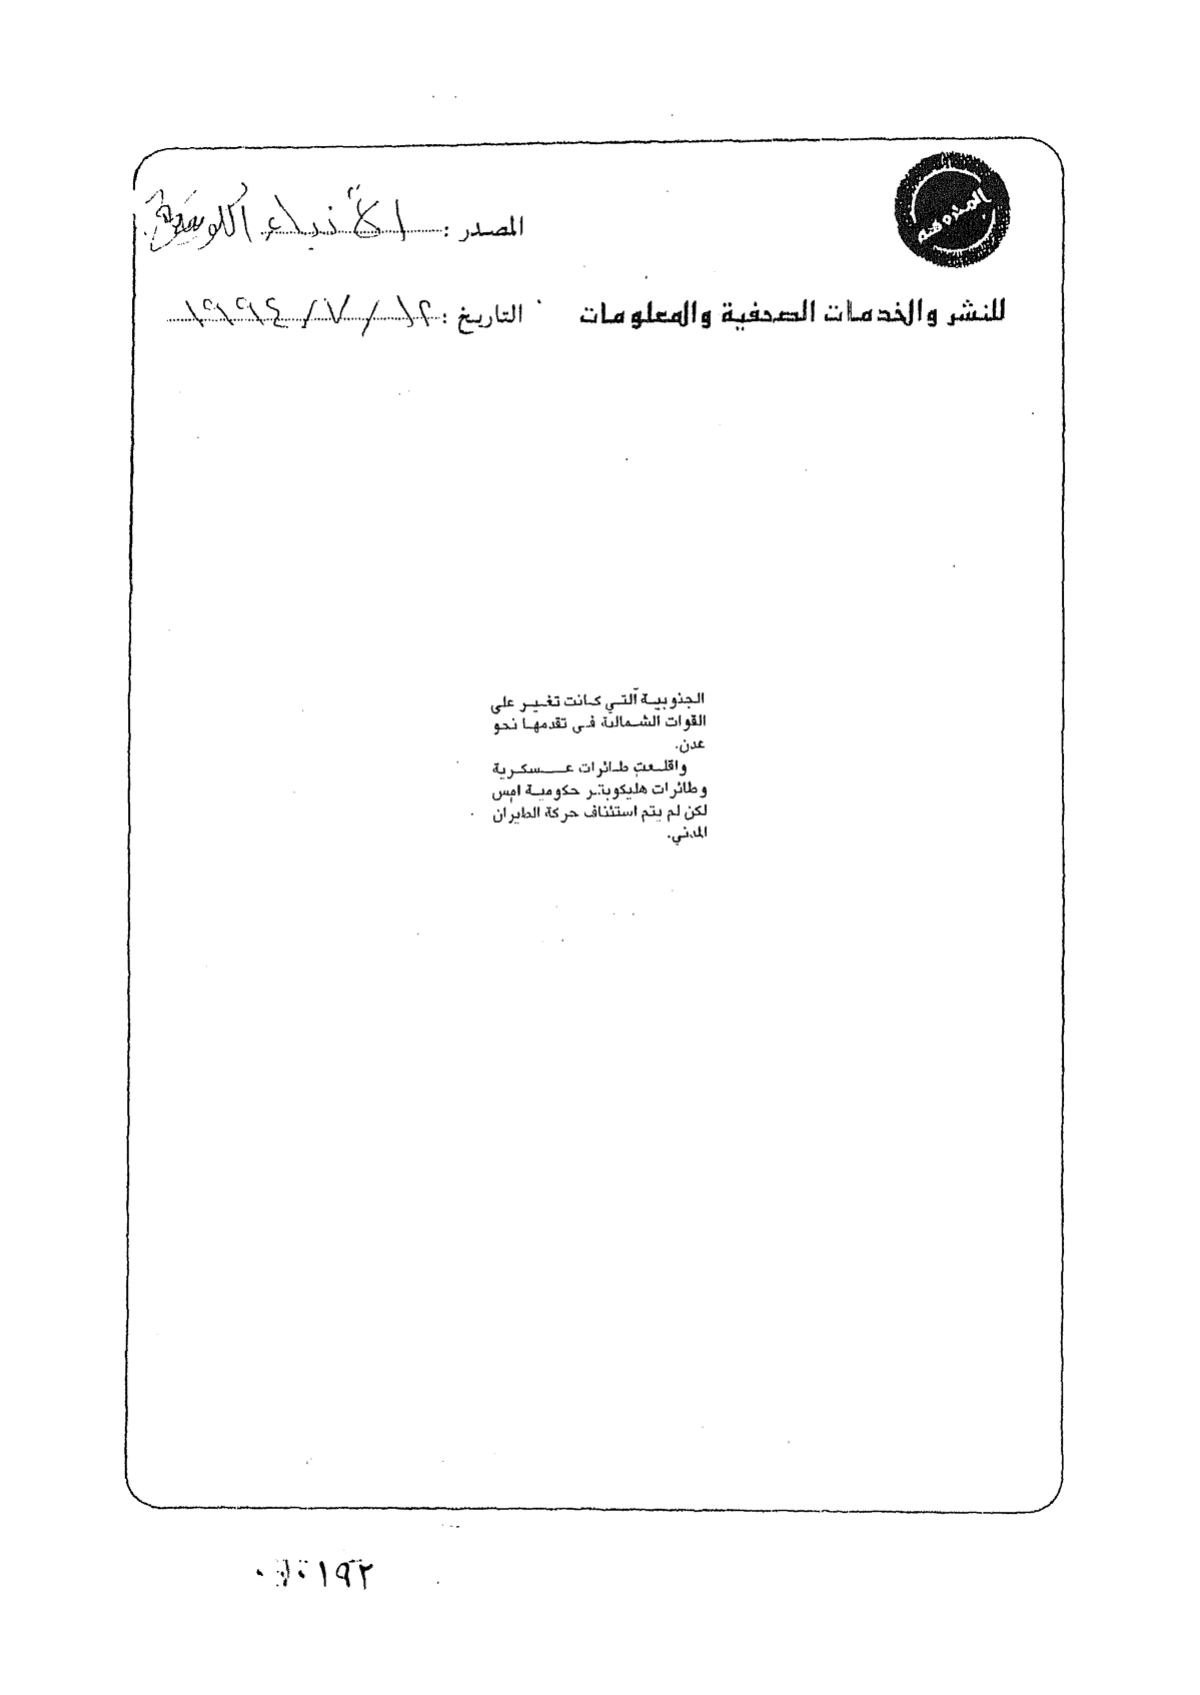 المصدر : الأنباء الكويتية
للنشر والخدمات الصحفية والمعلومات
التاريخ : ١٢ / ٧ / ١٩٩٤
الجنوبية التي كانت تغير على
القوات الشمالية في تقدمها نحو
عدن.
واقلعت طائرات عسكرية
وطائرات هليكوبتر حكومية امس
لكن لم يتم استئناف حركة الطيران
المدني.